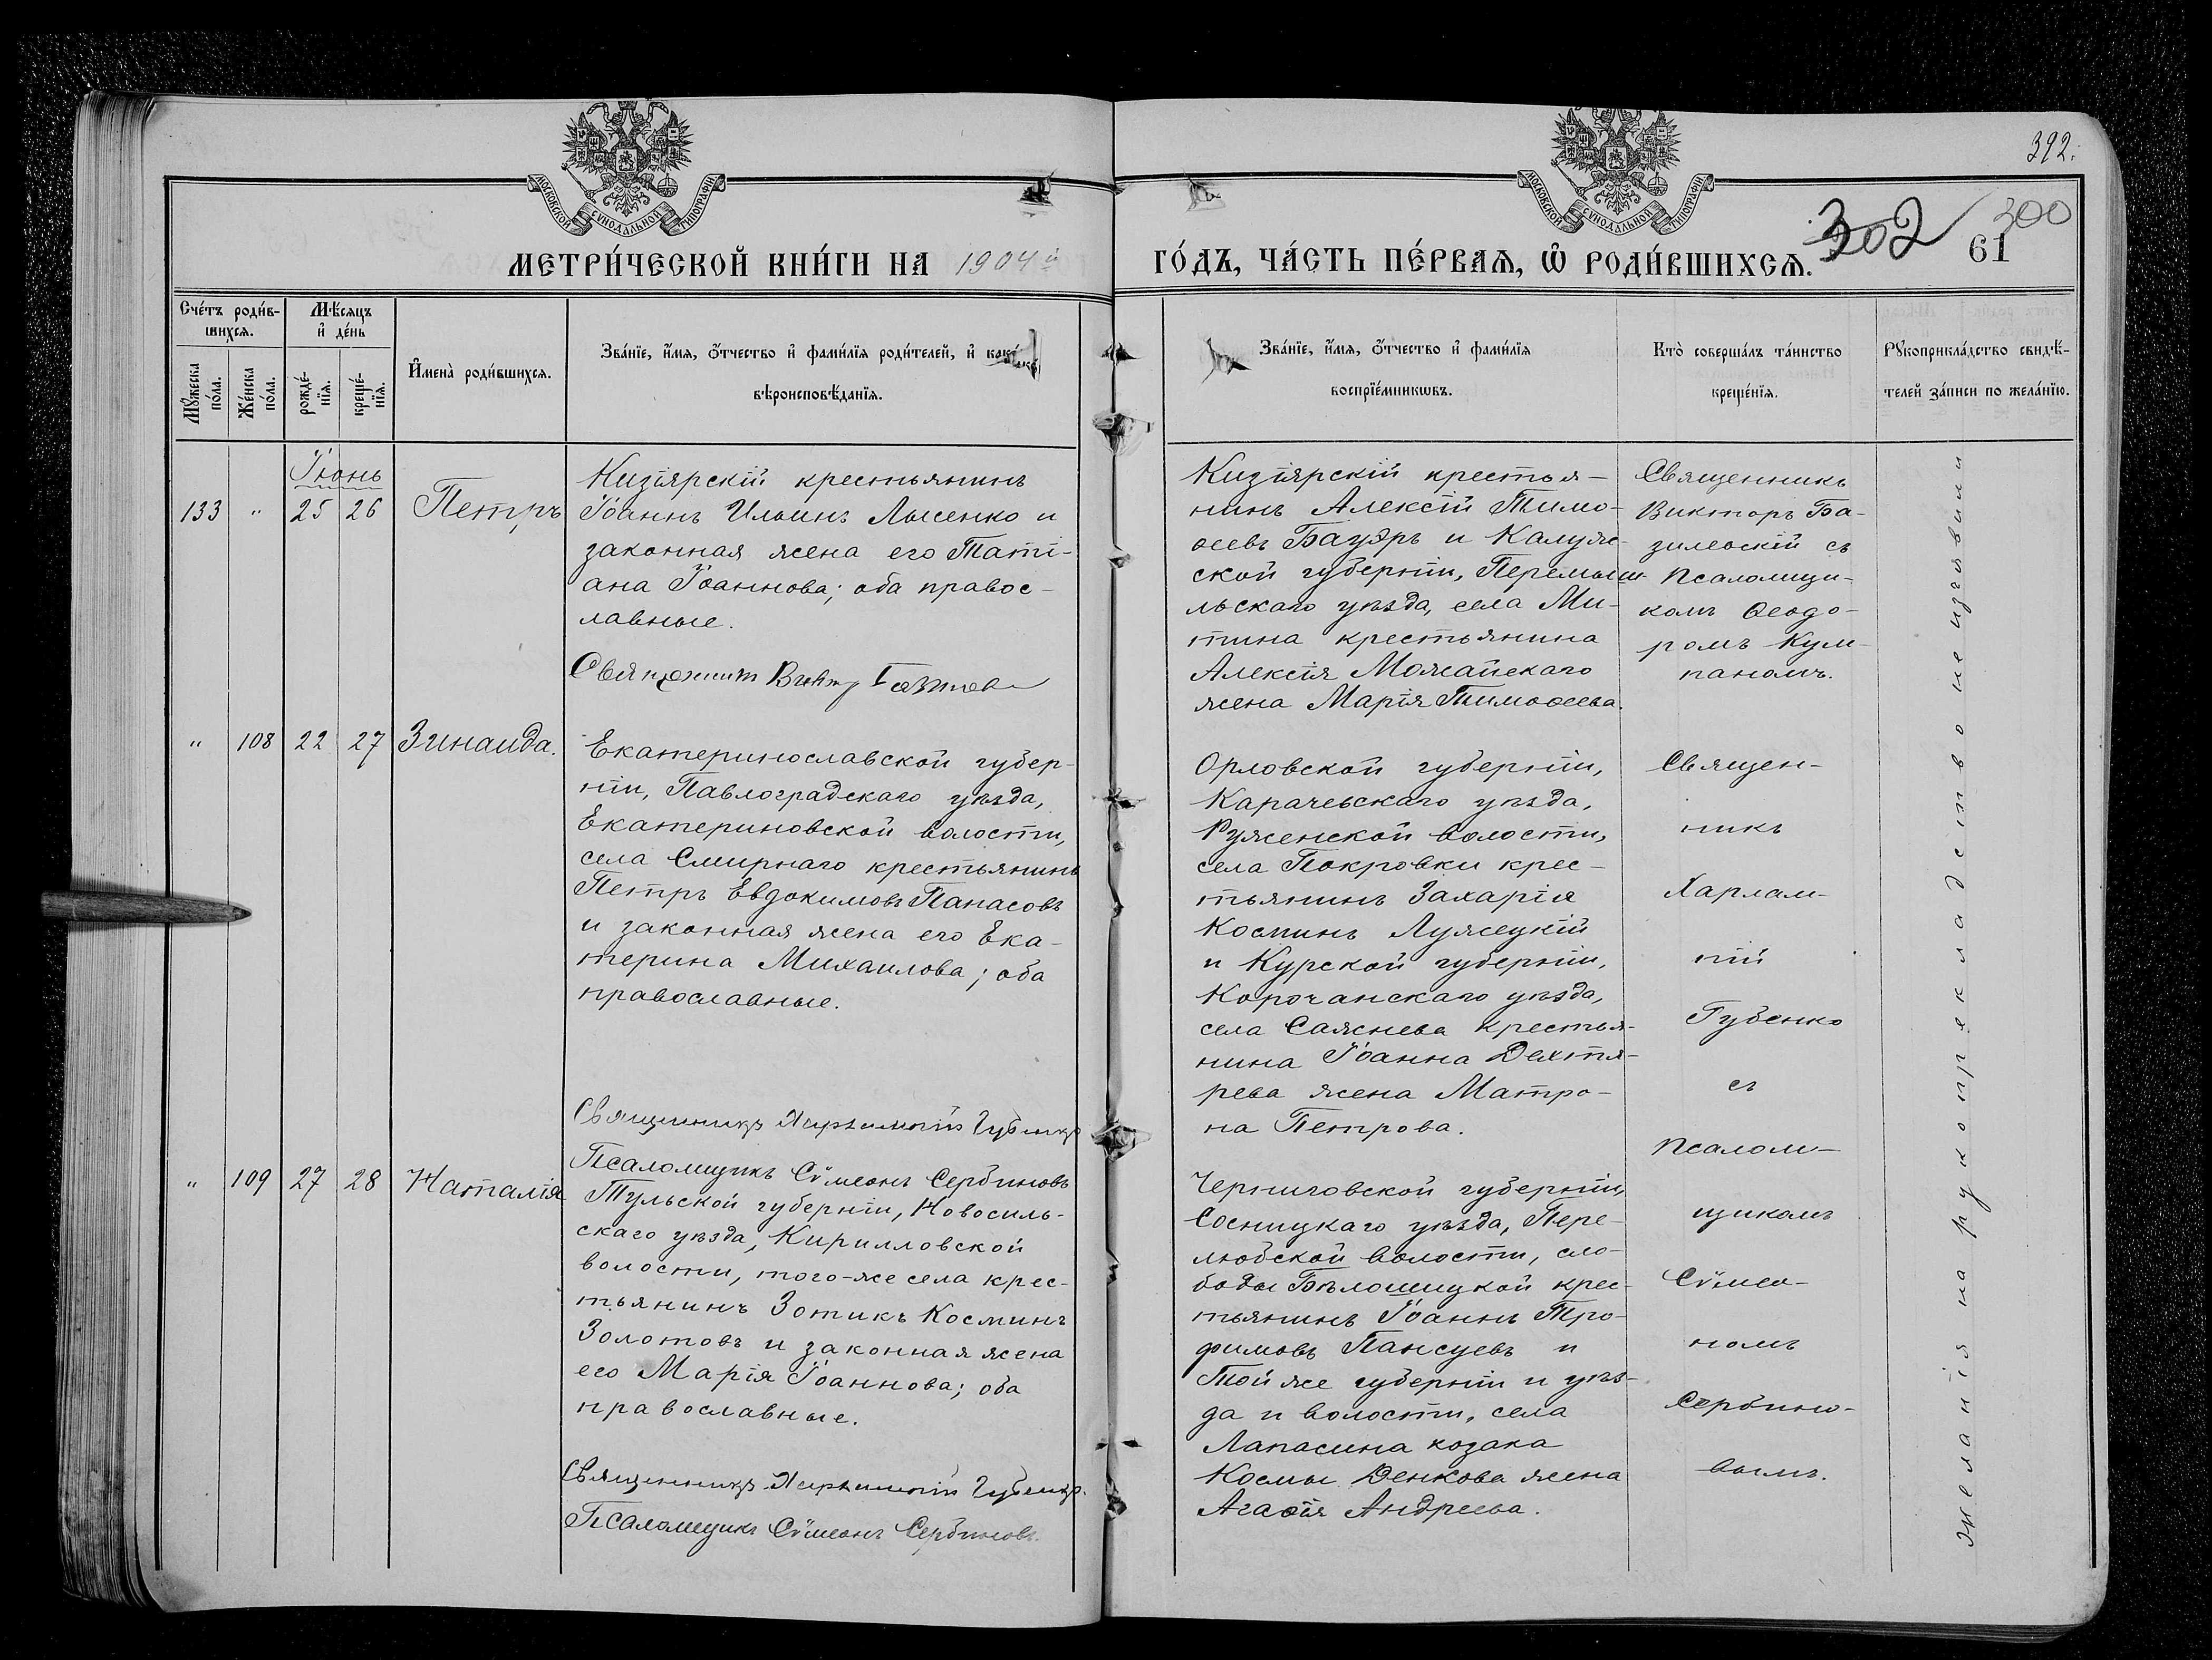 392.
МОСКОВСКОЙ СѴНОДАЛЬНОЙ ТИПОГРАФІИ
МОСКОВСКОЙ СѴНОДАЛЬНОЙ ТИПОГРАФІИ
МЕТРИ́ЧЕСКОЙ КНИ́ГИ НА 1904й
ГО́ДЪ, ЧА́СТЬ ПЕ́РВАѦ, Ѿ РОДИ́ВШИХСѦ.
302
300
61
Сче́тъ роди́в-
шихсѧ.
Мѣ́сѧцъ
и҆ де́нь
Мꙋ́жеска
по́ла.
Же́нска
по́ла.
рожде́-
нїѧ.
креще́-
нїѧ.
И҆мена̀ роди́вшихсѧ.
Зва́нїе, и҆́мѧ, ѻ҆́тчество и҆ фами́лїѧ роди́телей, и҆
вѣроисповѣ́данїѧ.
Зва́нїе, и҆́мѧ, ѻ҆́тчество и҆ фами́лїѧ
воспрїе́мникѡвъ.
Кто̀ соверша́лъ та́инство
креще́нїѧ.
Рꙋкоприкла́дство свидѣ́-
телей за́писи по жела́нїю.
Іюнь
133 " 25 26 Петръ
Кизіярскій крестьянинъ
Іоаннъ Ильинъ Лысенко и
законная жена его Таті-
ана Іоаннова; оба правос-
лавные.
Священникъ
Кизіярскій крестья-
нинъ Алексій Тимо-
ѳеевъ Бауэръ и Калуж-
ской губерніи, Перемыш-
льскаго уѣзда, села Ми-
тина крестьянина
Алексія Можайскаго
жена Марія Тимоѳеева.
Священникъ
Викторъ Ба-
зилевскій съ
псаломщи-
комъ Ѳеодо-
ромъ Кум-
паномъ.
" 108 22 27 Зинаида.
Екатеринославской губер-
ніи, Павлоградскаго уѣзда,
Екатериновской волости,
села Смирнаго крестьянинъ
Петръ Евдокимовъ Панасовъ
и законная жена его Ека-
терина Михаилова; оба
православные.
Священникъ Харлампій Губенко
Псаломщикъ Сѵмеонъ Сербиновъ
Орловской губерніи,
Карачевскаго уѣзда,
Руженской волости,
села Покровки крес-
тьянинъ Захарія
Косминъ Лужецкій
и Курской губерніи,
Корочанскаго уѣзда,
села Сажнева крестья-
нина Іоанна Дехтя-
рева жена Матро-
на Петрова.
Священ-
никъ
Харлам-
пій
Губенко
съ
псалом-
щикомъ
Сѵмео-
номъ
Сербино-
вымъ.
" 109 27 28 Наталія
Тульской губерніи, Новосиль-
скаго уѣзда, Кирилловской
волости, того-же села крес-
тьянинъ Зотикъ Косминъ
Золотовъ и законная жена
его Марія Іоаннова; оба
православные.
Священникъ Харлампій Губенко.
Псаломщикъ Сѵмеонъ Сербиновъ.
Черниговской губерніи,
Сосницкаго уѣзда, Пере-
любской волости, сло-
боды Бѣлошицкой крес-
тьянинъ Іоаннъ Тро-
фимовъ Пансуевъ и
Той же губерніи и уѣз-
да и волости, села
Лапасина козака
Космы Денкова жена
Агаѳія Андреева.
Желанія на рукоприкладство не изъявили